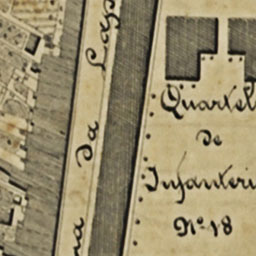 da
Quartel
de
Infanteri
Nº 18